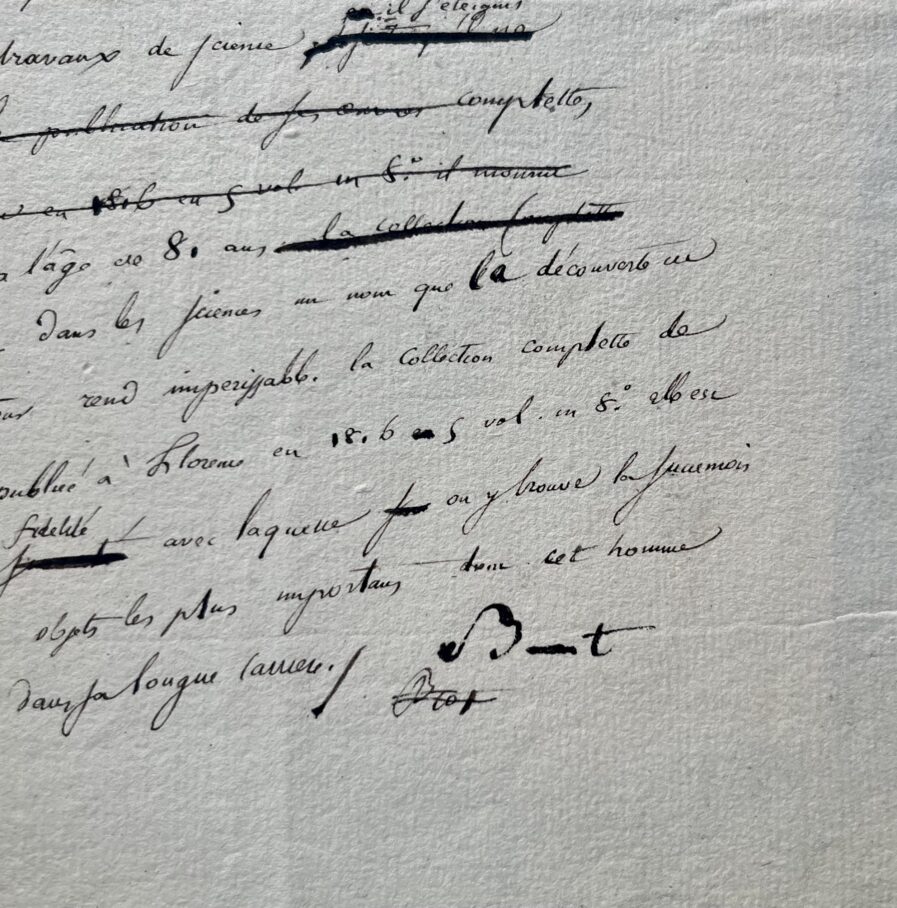 en il s'eteignit
travaux de science
la publication de ses œuvres complettes,
en 1816 en 5 vol in 8.° il mourut
à l'âge de 8. ans la collection Complette
dans les sciences un nom que la découverte de
rend imperissable. la Collection complette de
publiée à Florence en 1816 en 5 vol. in 8.° elle est
fidelité
avec laquelle on y trouve la
objets les plus importans dont cet homme
dans sa longue Carriere./
B—t
Biot